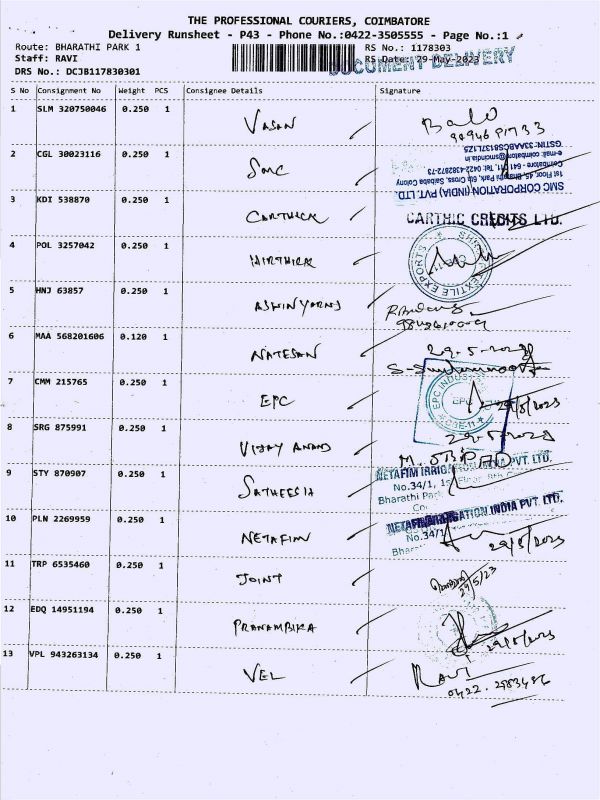 THE PROFESSIONAL COURIERS, COIMBATORE
Delivery Runsheet - P43 - Phone No.:0422-3505555 - Page No.:1
Route: BHARATHI PARK 1
RS No.: 1178303
Staff: RAVI
RS Date: 29-May-2023
DOCUMENT DELIVERY
DRS No.: DCJB117830301
S No Consignment No Weight PCS Consignee Details Signature
1 SLM 320750046 0.250 1 VASAN
2 CGL 30023116 0.250 1 SMC
SMC CORPORATION (INDIA) PVT. LTD.
1st Floor, 45, Bharathi Park, 6th Cross, Saibaba Colony
3 KDI 538870 0.250 1 CARTHICK CARTHIC CREDITS LTD.
4 POL 3257042 0.250 1 HIRTHICK
5 HNJ 63857 0.250 1 ASHINYARNS
6 MAA 568201606 0.120 1 NATESAN 29-5-2023
7 CMM 215765 0.250 1 EPC 29/5/2023
8 SRG 875991 0.250 1 VIJAY ANAND 29-5-2023
9 STY 870907 0.250 1 SATHEESH
NETAFIM IRRIGATION INDIA PVT. LTD.
No.34/1, 1st Floor
Bharathi Park
10 PLN 2269959 0.250 1 NETAFIM
NETAFIM IRRIGATION INDIA PVT. LTD.
No.34/1
29/5/2023
11 TRP 6535460 0.250 1 JOINT 29/5/23
12 EDQ 14951194 0.250 1 PRANAMBIKA 29/5/2023
13 VPL 943263134 0.250 1 VEL Ravi